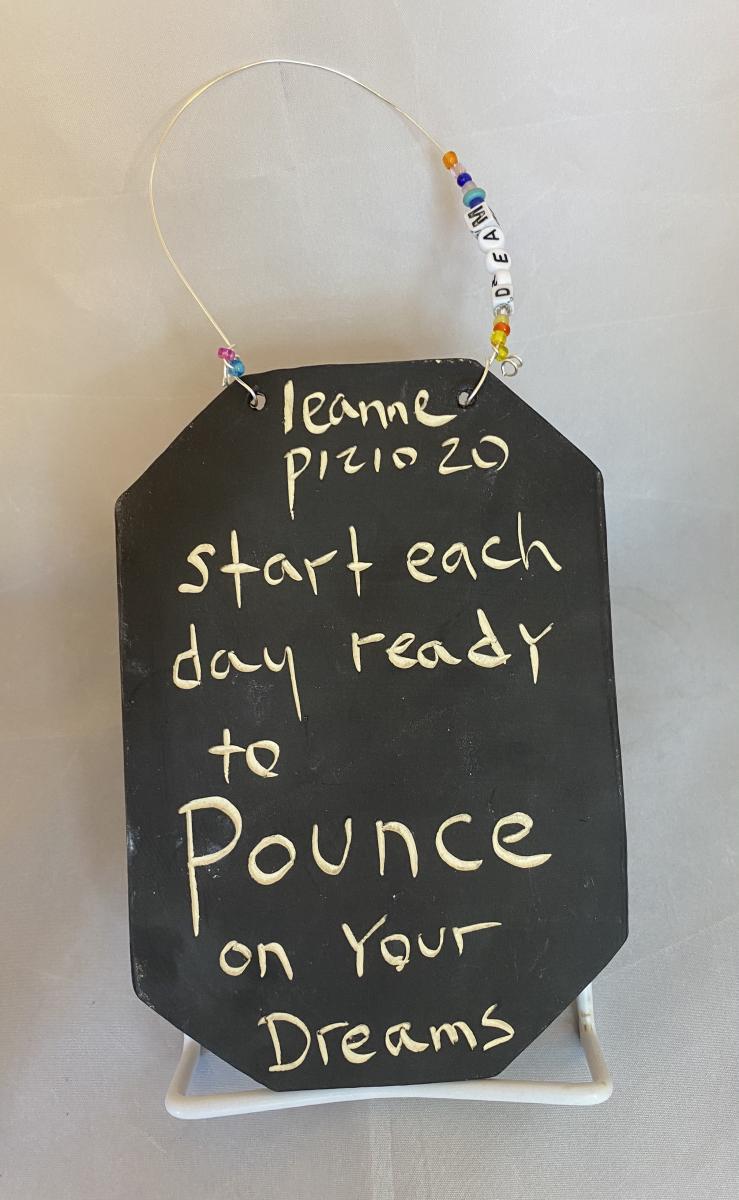 DREAM
leanne
pizio 20
start each
day ready
to
Pounce
on Your
Dreams